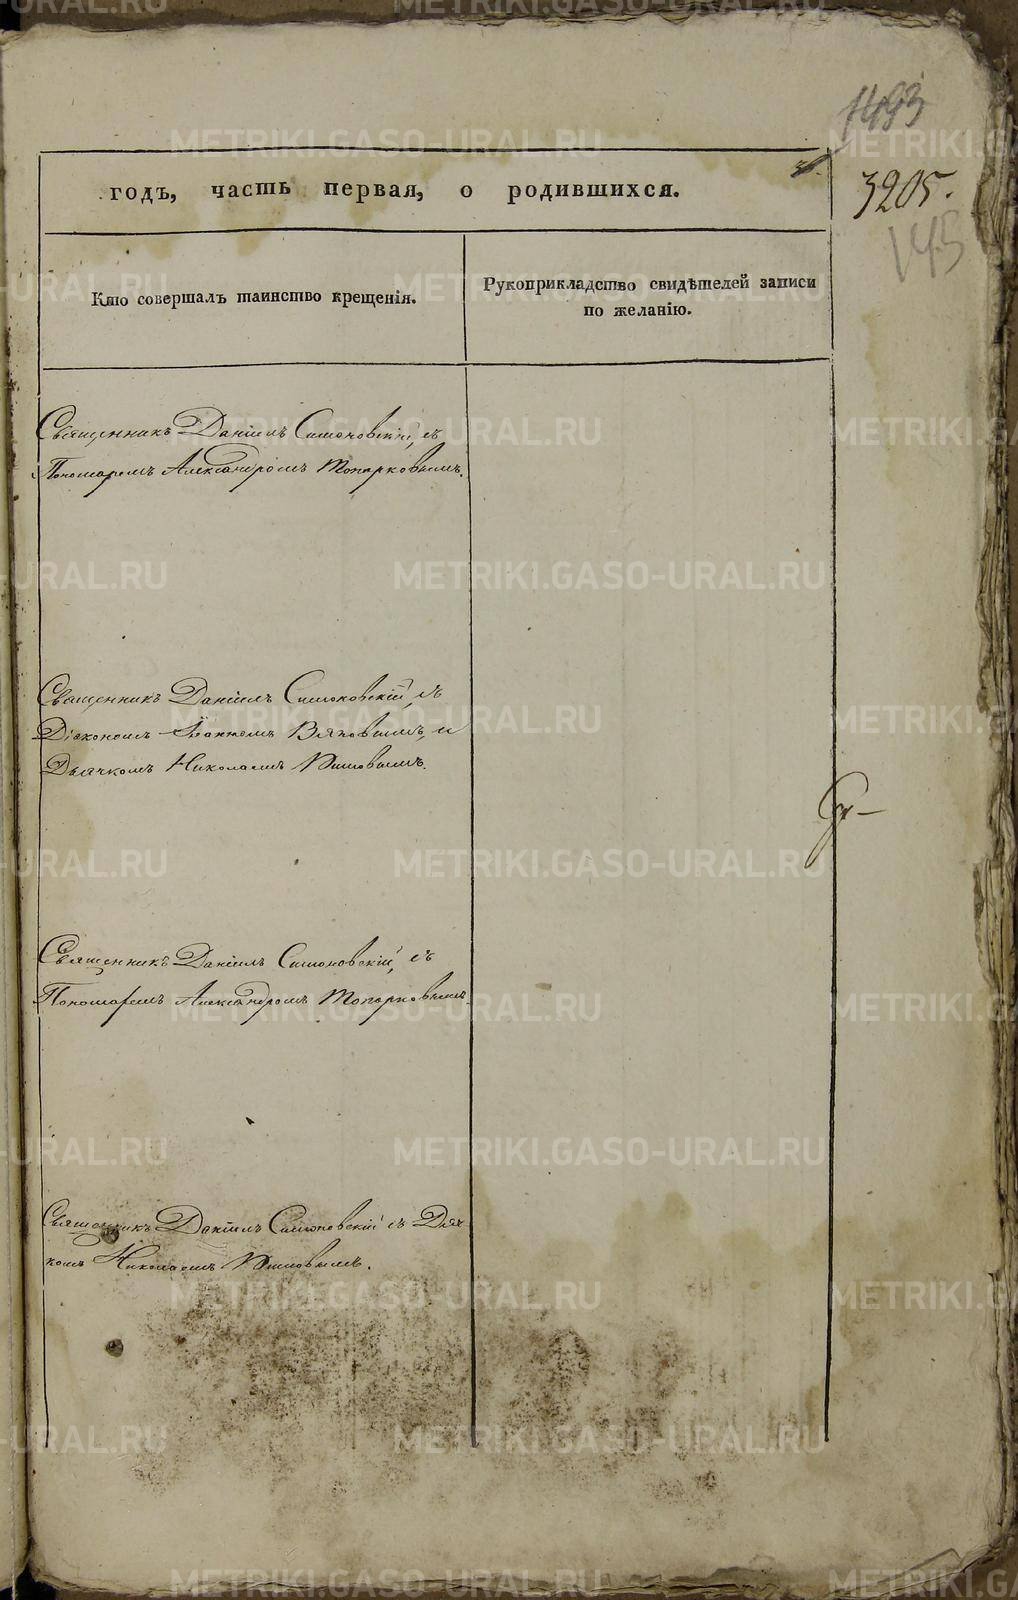 1493
3205.
145
годъ, часть первая, о родившихся.
Кто совершалъ таинство крещенія.
Рукоприкладство свидѣтелей записи
по желанію.
Священникъ Даніилъ Симоновскій, съ
Пономаремъ Александромъ Топорковымъ.
Священникъ Даніилъ Симоновскій, съ
Діакономъ Іоанномъ и
Дьячкомъ Николаемъ
Священникъ Даніилъ Симоновскій, съ
Пономаремъ Александромъ Топорковымъ.
Священникъ Даніилъ Симоновскій съ Дяч
комъ Николаемъ
METRIKI.GASO-URAL.RU